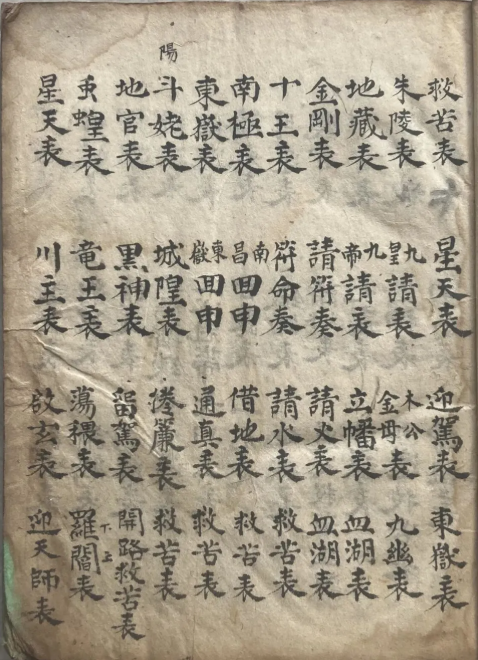 救苦表 星天表 迎駕表 東嶽表
朱陵表 九皇請表 木公金母表 九幽表
地藏表 九帝請表 立幡表 血湖表
金剛表 請符奏 請火表 血湖表
十王表 符命奏 請水表 救苦表
南極表 南昌回申 借地表 救苦表
東嶽表 東嶽回申 通真表 救苦表
陽斗姥表 城隍表 捲簾表 救苦表
地官表 黑神表 留駕表 開路救苦表
虫蝗表 竜王表 蕩穢表 羅閻表
星天表 川主表 啟玄表 迎天師表